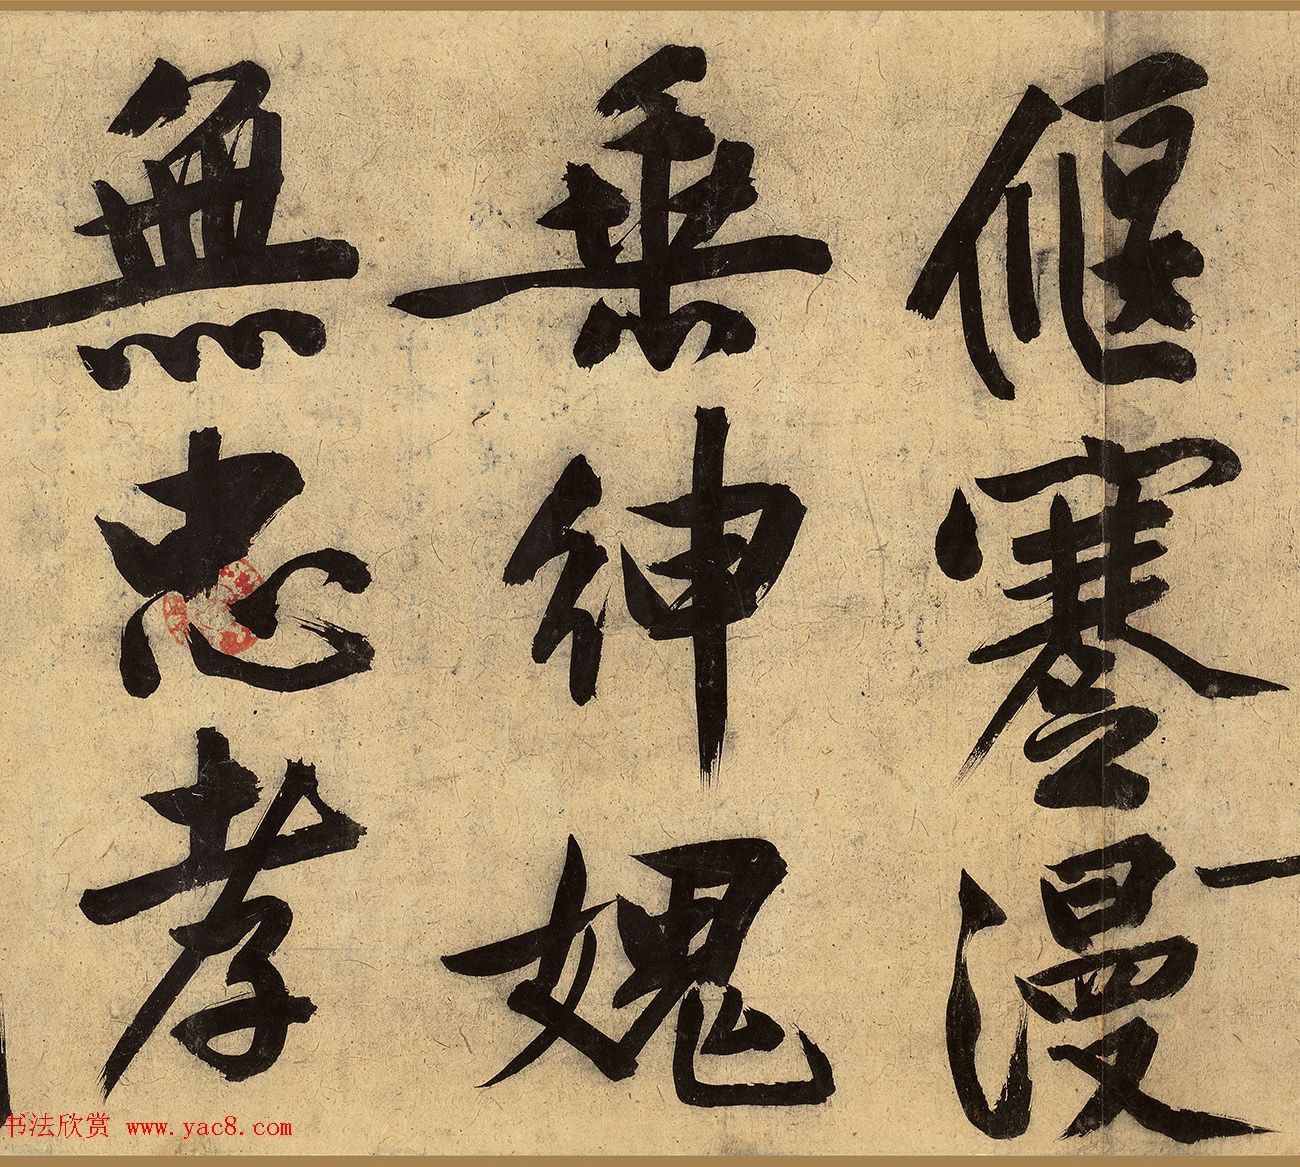 偃蹇漫
乘紳媿
無忠孝
书法欣赏 www.yac8.com